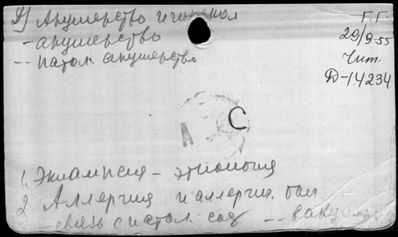 Акушерство и гинекол
- акушерство
-- патол. акушерство
Г.Г.
29/9-55
Чит.
Д-14234
А С
1. Эклампсия - этиология
2 Аллергия и аллергич. бол
- связь с патол. сос -- в акушер